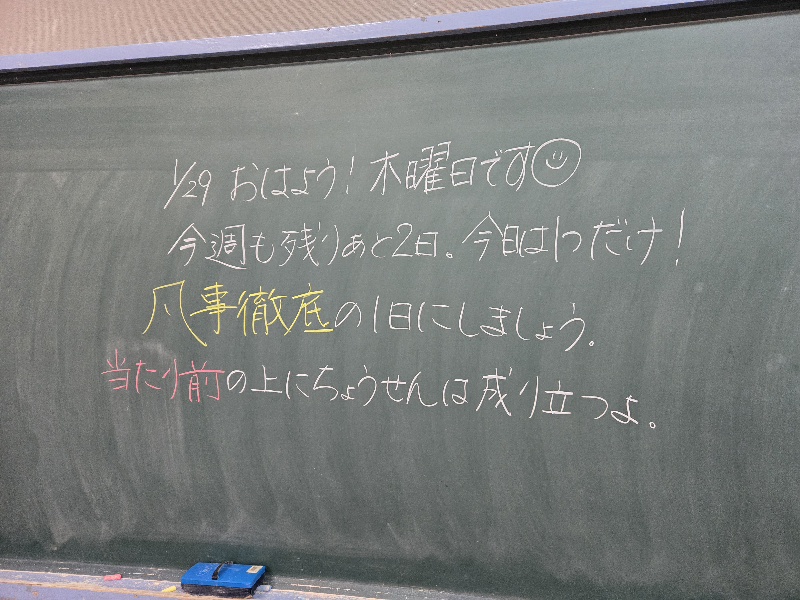 1/29 おはよう！木曜日です☺
今週も残りあと2日。今日は1つだけ！
凡事徹底の1日にしましょう。
当たり前の上にちょうせんは成り立つよ。